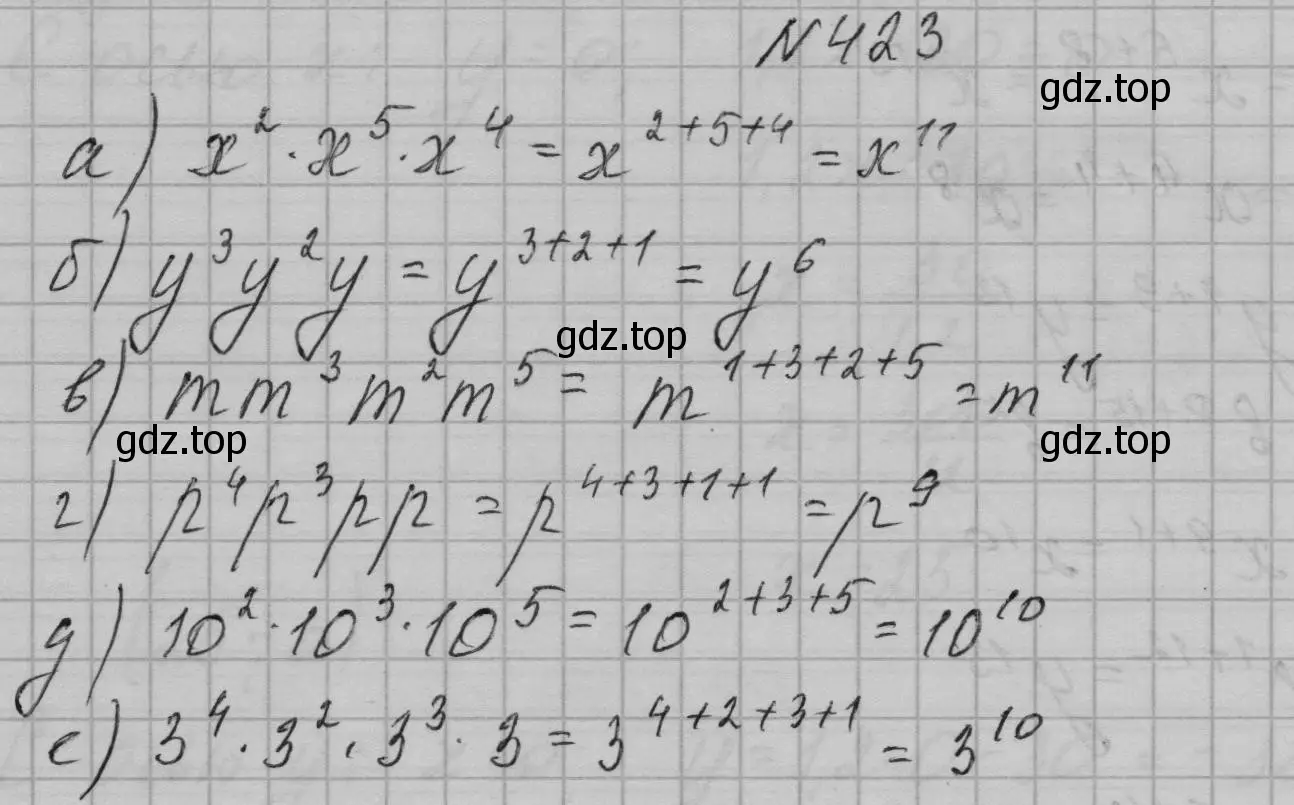 N 423
gdz.top
а) x² · x⁵ · x⁴ = x²⁺⁵⁺⁴ = x¹¹
б) y³y²y = y³⁺²⁺¹ = y⁶
gdz.top
в) mm³m²m⁵ = m¹⁺³⁺²⁺⁵ = m¹¹
gdz.top gdz.top
г) p⁴p³pp = p⁴⁺³⁺¹⁺¹ = p⁹
д) 10² · 10³ · 10⁵ = 10²⁺³⁺⁵ = 10¹⁰
е) 3⁴ · 3² · 3³ · 3 = 3⁴⁺²⁺³⁺¹ = 3¹⁰